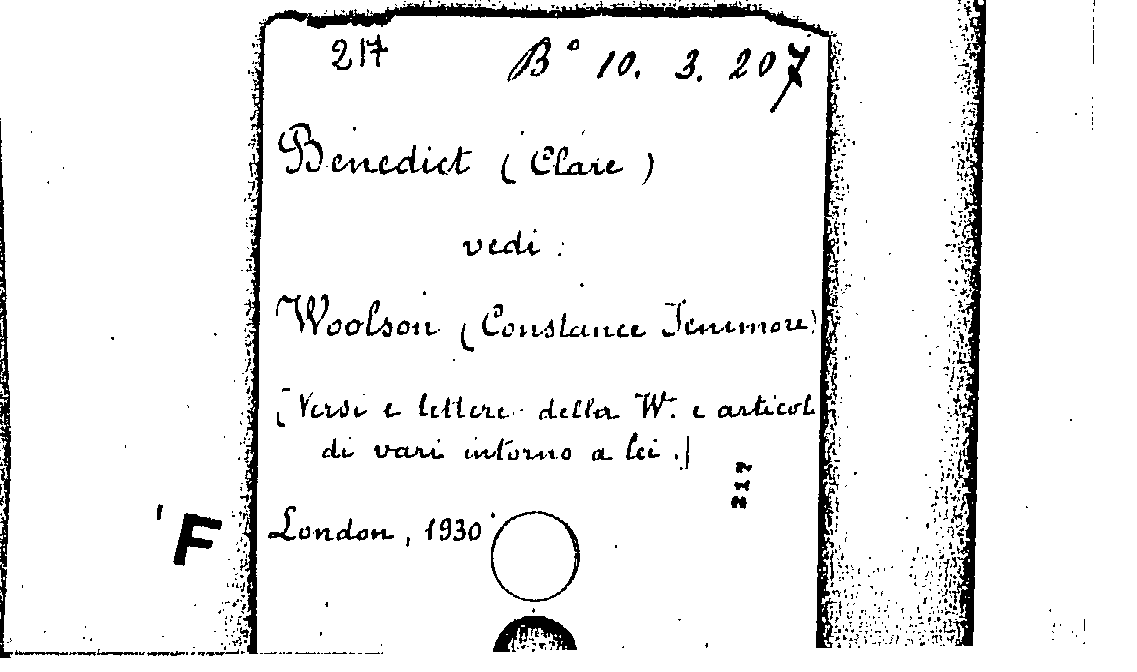 217 B° 10. 3. 207
Benedict (Clare)
vedi :
Woolson (Constance Fenimore)
[Versi e lettere della W. e articoli
di vari intorno a lei.]
217
London, 1930
F